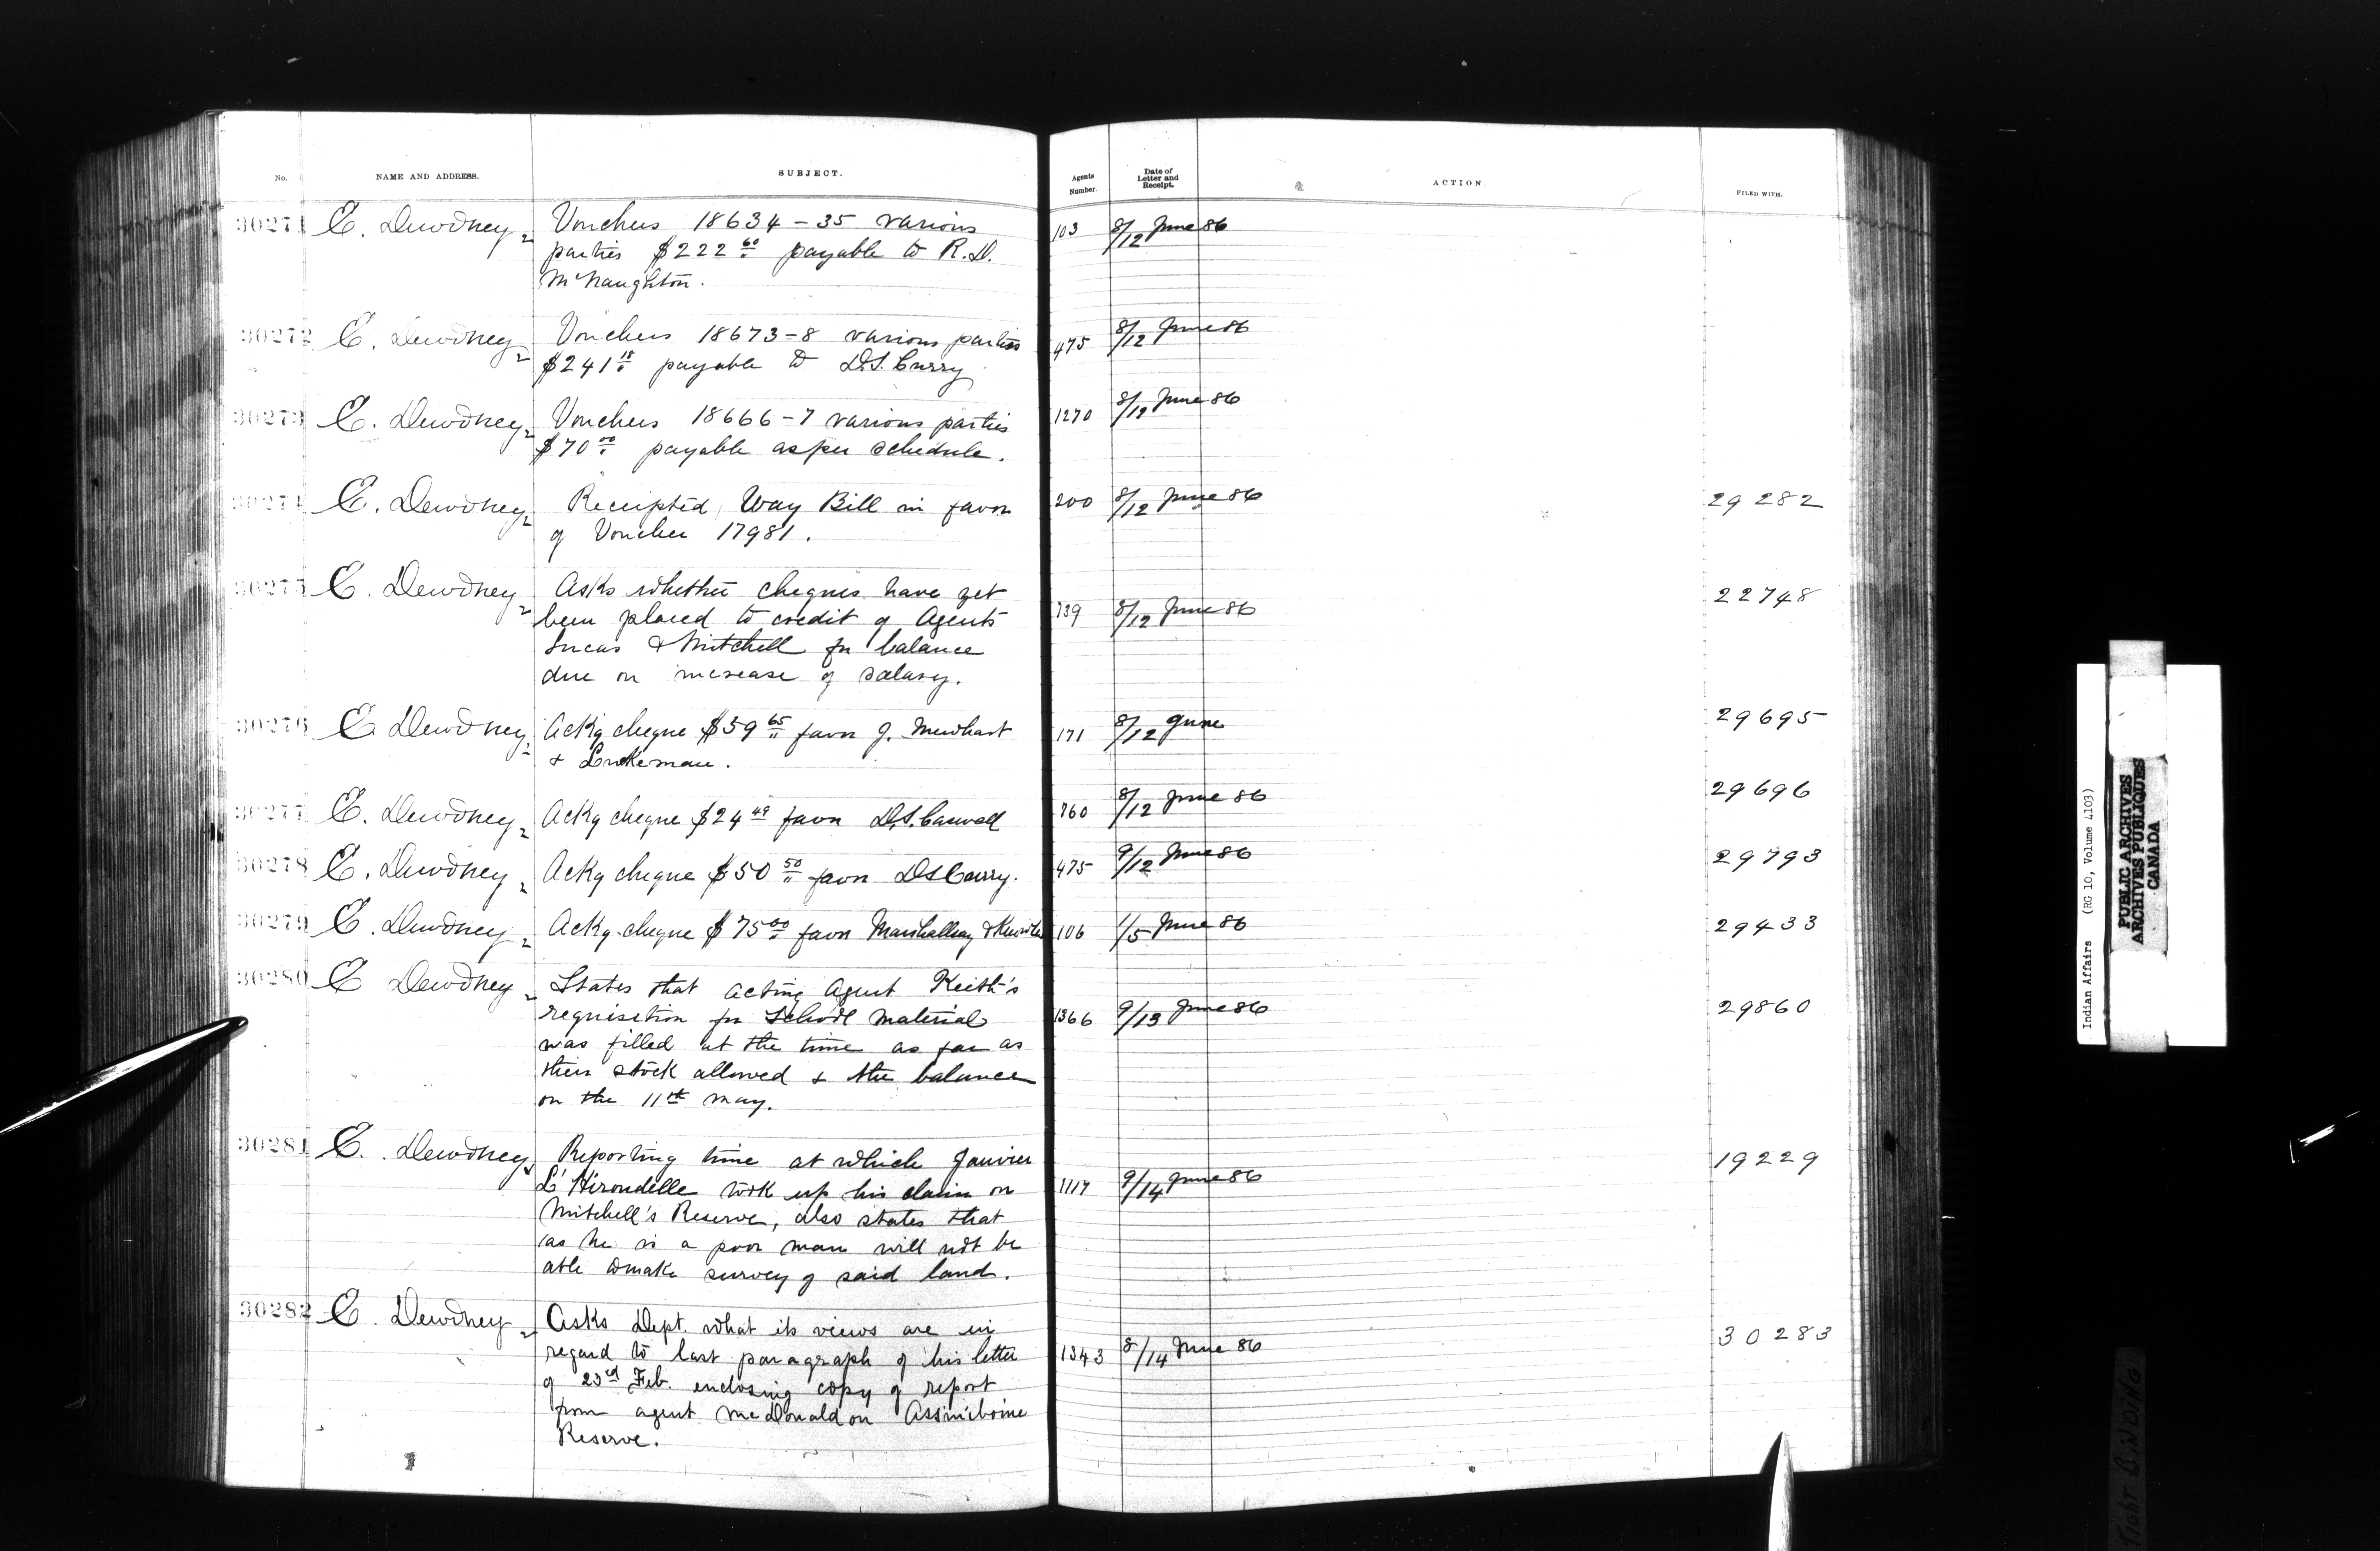 No. NAME AND ADDRESS. SUBJECT. Agents Number. Date of Letter and Receipt. ACTION. FILED WITH.
30271 E. Dewdney Vouchers 18634-35 various 103 8/12 June 86
parties $222 60 payable to R.D.
McNaughton.
30272 E. Dewdney Vouchers 18673-8 various parties 475 8/12 June 86
$241 18 payable to D.S. Curry
30273 E. Dewdney Vouchers 18666-7 various parties 1270 8/12 June 86
$70 00 payable as per schedule.
30274 E. Dewdney Receipted Way Bill in favor 200 8/12 June 86 29282
of Voucher 17981.
30275 E. Dewdney Asks whether cheques have yet 22748
been placed to credit of Agents 739 8/12 June 86
Lucas & Mitchell for balance
due on increase of salary.
30276 E. Dewdney Ackg cheque $59 65 favor J. 171 8/12 June 29695
&
30277 E. Dewdney Ackg cheque $24 49 favor D.S. 760 8/12 June 86 29696
30278 E. Dewdney Ackg cheque $50 50 favor D S Curry. 475 9/12 June 86 29793
30279 E. Dewdney Ackg. cheque $75 00 favor 106 1/5 June 86 29433
30280 E Dewdney States that acting Agent Keith's
requisition for School material 1366 9/13 June 86 29860
was filled at the time as far as
their stock allowed & the balance
on the 11th May.
30281 E. Dewdney Reporting time at which Janvier 19229
L'Hirondelle took up his claim on 1117 9/14 June 86
Mitchell's Reserve, also states that
as he is a poor man will not be
able to make survey of said land.
30282 E. Dewdney Asks Dept. what its views are in 30283
regard to last paragraph of his letter 1343 8/14 June 86
of 23rd Feb. enclosing copy of report
from agent McDonald on Assiniboine
Reserve.
Indian Affairs (RG 10, Volume 4103)
PUBLIC ARCHIVES
ARCHIVES PUBLIQUES
CANADA
TIGHT BINDING